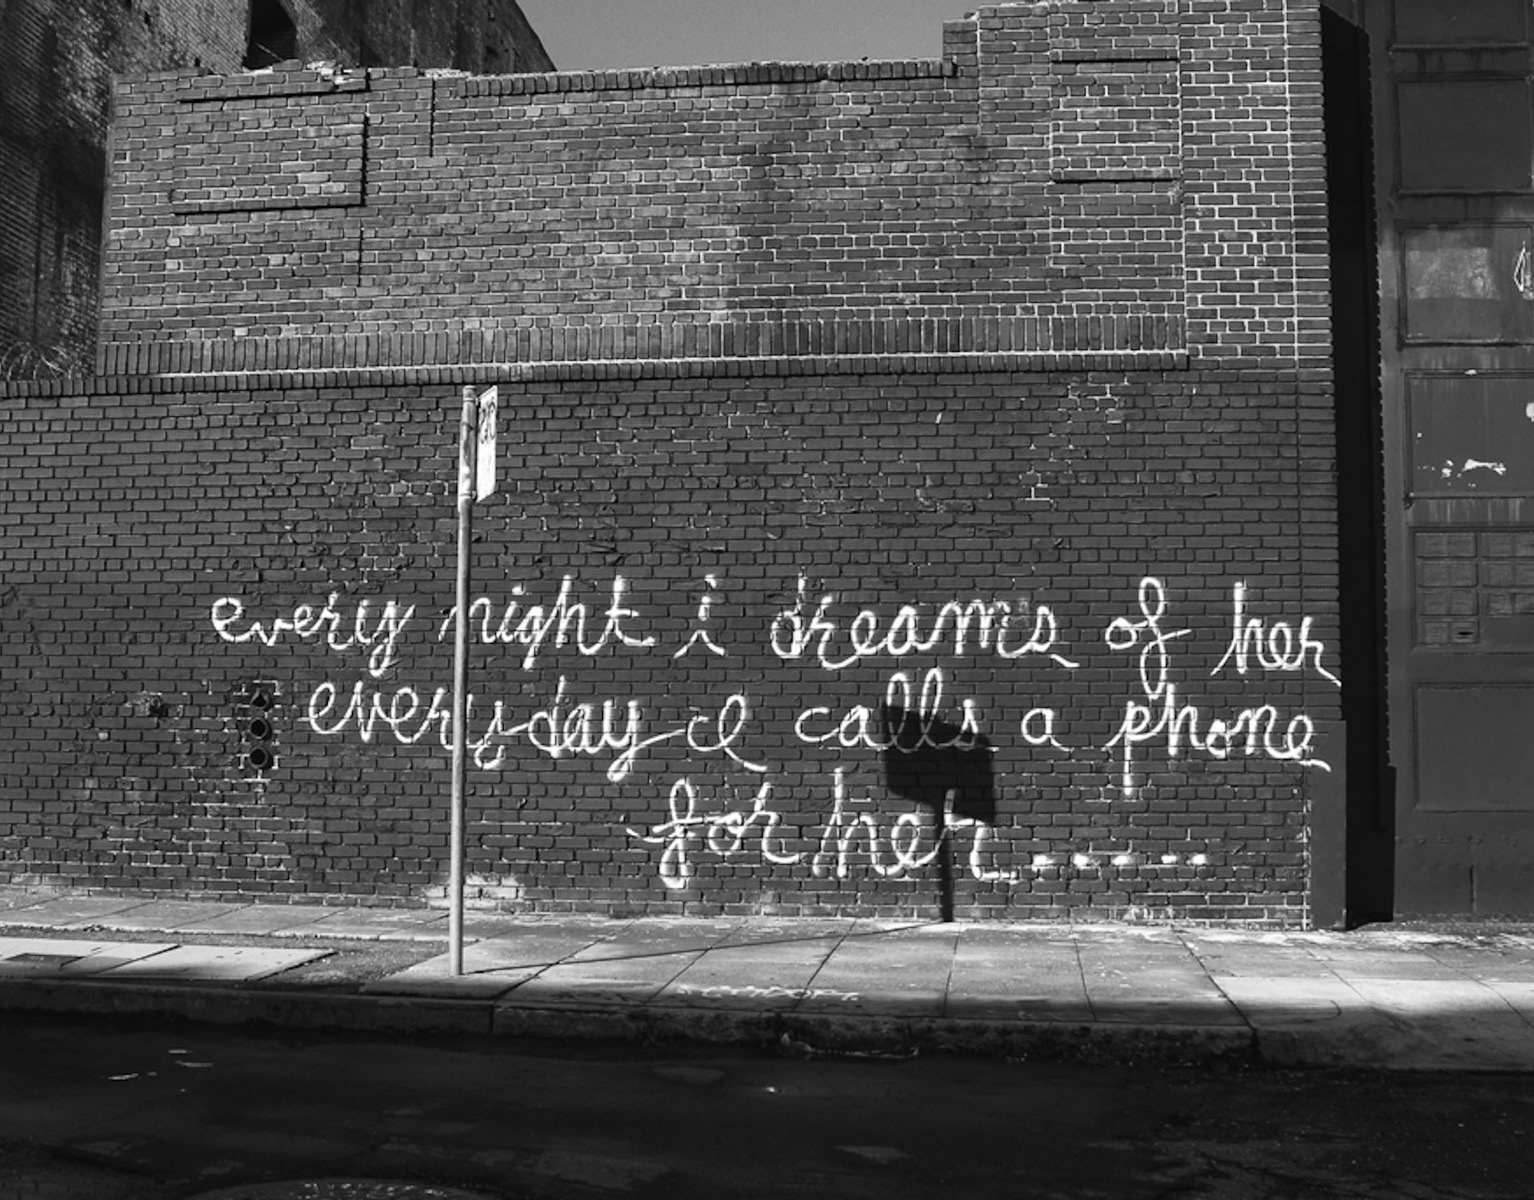 every night i dreams of her
everyday i calls a phone
for her......